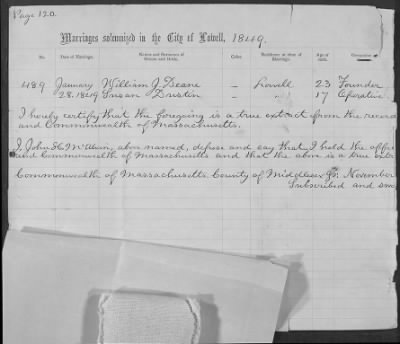 Page 120.
Marriages solemnized in the City of Lowell, 1849.
No. Date of Marriage. Names and Surnames of Groom and Bride. Color. Residence at time of Marriage. Age of each. Occupation
489 January William J. Deane — Lowell 23 Founder
28. 1849 Susan Dustin — " 17 Operative
I hereby certify that the foregoing is a true extract from the record
and Commonwealth of Massachusetts.
I, John H. McAlvin, above named, depose and say that I hold the office
and Commonwealth of Massachusetts and that the above is a true extr
Commonwealth of Massachusetts. County of Middlesex ss. November
Subscribed and swo